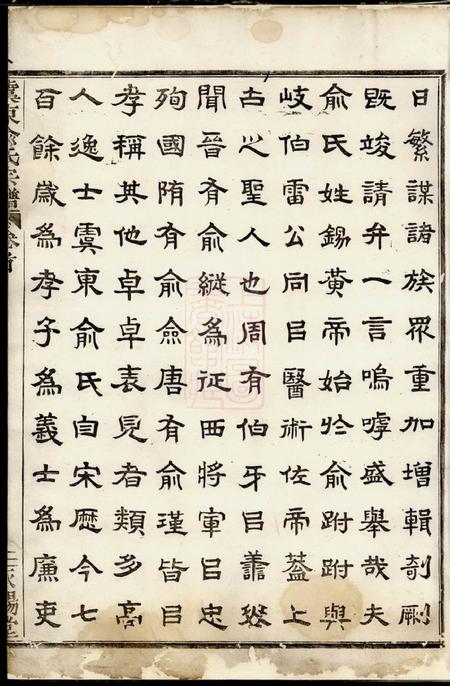 日繁謀諸族眾重加增輯剞劂
既竣請弁一言嗚嘑盛舉哉夫
俞氏姓錫黃帝始於俞跗跗與
岐伯雷公同㠯醫術佐帝蓋上
古之聖人也周有伯牙㠯善琴
聞晉有俞縱為征西將軍㠯忠
殉國陏有俞僉唐有俞瑾皆㠯
孝稱其他卓卓表見者類多高
人逸士虞東俞氏自宋歷今七
百餘歲為孝子為義士為廉吏
虞東俞氏宗譜 卷首